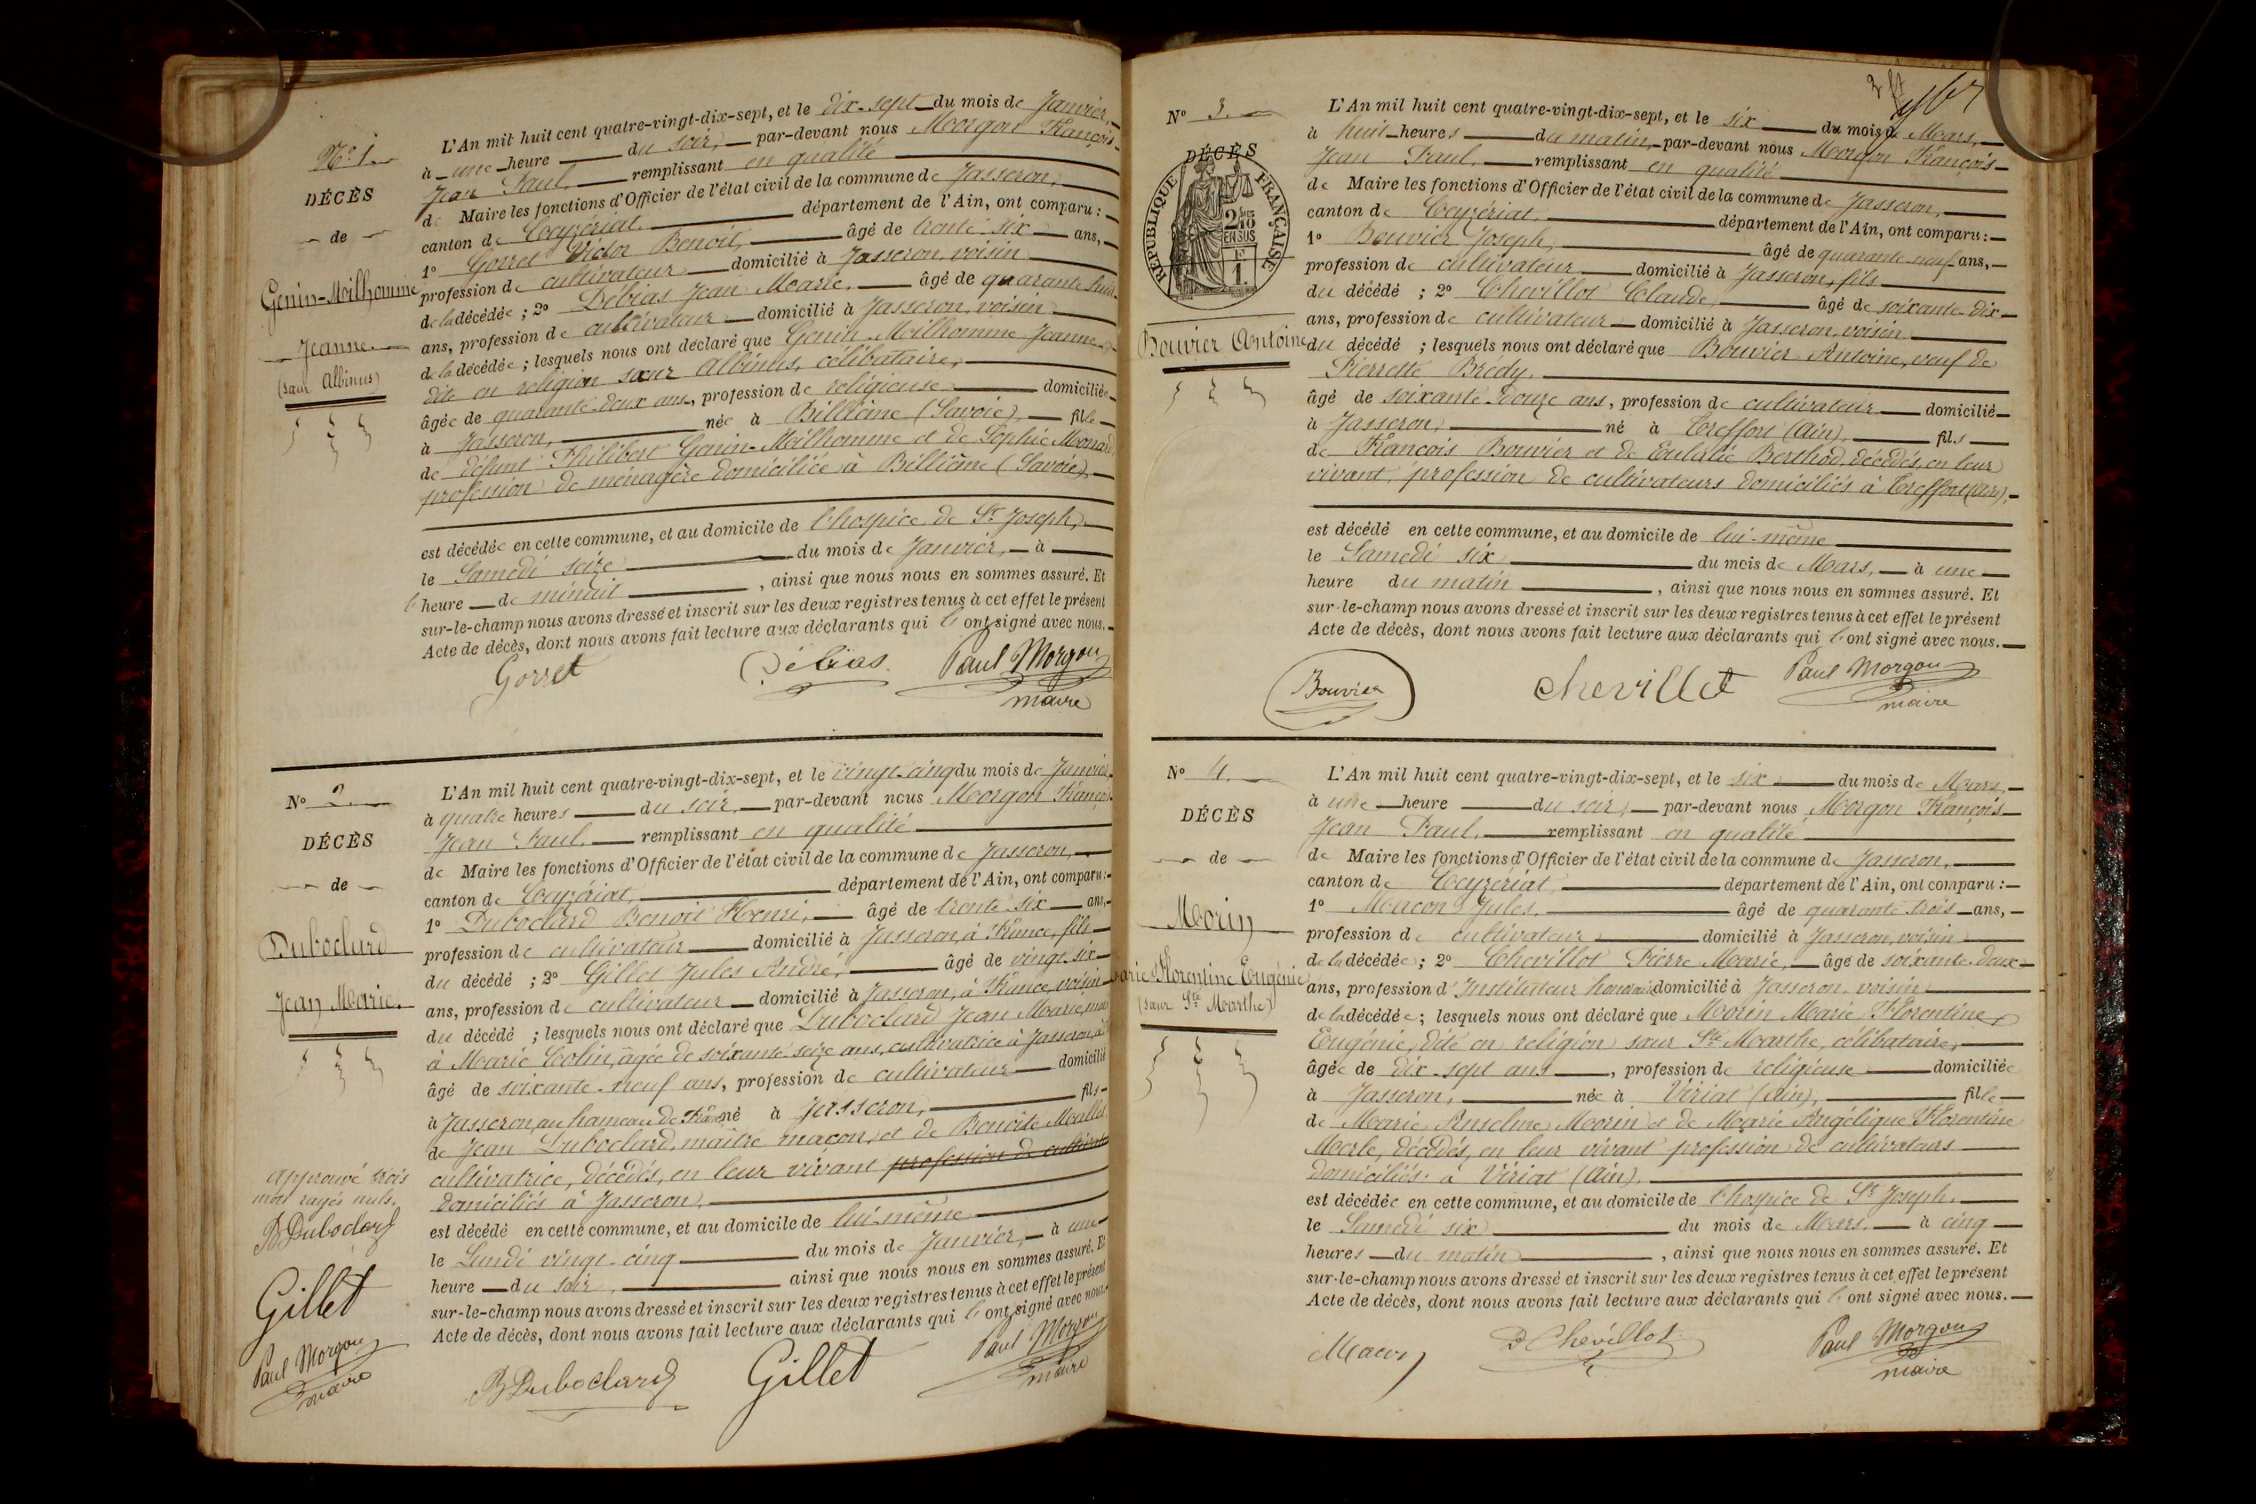 N° 1.
DÉCÈS
de
Genin-Meilhomme
Jeanne.
(sœur Albinus)
L'An mil huit cent quatre-vingt-dix-sept, et le dix-sept du mois de Janvier,
à une heure du soir, par-devant nous Morgon François
Jean Paul, remplissant en qualité
de Maire les fonctions d'Officier de l'état civil de la commune de Jasseron,
canton de Ceyzériat, département de l'Ain, ont comparu :
1° Gorret Victor Benoit, âgé de trente-six ans,
profession de cultivateur domicilié à Jasseron, voisin
de la décédée ; 2° Débias Jean Marie, âgé de quarante huit
ans, profession de cultivateur domicilié à Jasseron, voisin
de la décédée ; lesquels nous ont déclaré que Genin-Meilhomme Jeanne
dite en religion sœur Albinus, célibataire,
âgée de quarante-deux ans, profession de religieuse domiciliée
à Jasseron, née à Billième (Savoie), fille
de défunt Philibert Genin-Meilhomme et de Sophie Monard
profession de ménagère domiciliée à Billième (Savoie),
est décédée en cette commune, et au domicile de l'hospice de St Joseph,
le Samedi seize du mois de Janvier, à
l'heure de minuit, ainsi que nous nous en sommes assuré. Et
sur-le-champ nous avons dressé et inscrit sur les deux registres tenus à cet effet le présent
Acte de décès, dont nous avons fait lecture aux déclarants qui l'ont signé avec nous.
Gorret Débias Paul Morgon
maire
N° 2
DÉCÈS
de
Duboclard
Jean Marie.
L'An mil huit cent quatre-vingt-dix-sept, et le vingt-cinq du mois de Janvier,
à quatre heures du soir, par-devant nous Morgon François
Jean Paul, remplissant en qualité
de Maire les fonctions d'Officier de l'état civil de la commune de Jasseron,
canton de Ceyzériat, département de l'Ain, ont comparu :
1° Duboclard Benoit Henri, âgé de trente-six ans,
profession de cultivateur domicilié à Jasseron, à France, fils
du décédé ; 2° Gillet Jules André, âgé de vingt-six
ans, profession de cultivateur domicilié à Jasseron, à France, voisin
du décédé ; lesquels nous ont déclaré que Duboclard Jean Marie,
à Marie Colin, âgée de soixante-seize ans, cultivatrice à Jasseron,
âgé de soixante-neuf ans, profession de cultivateur domicilié
à Jasseron, au hameau de France né à Jasseron, fils
de Jean Duboclard, maître maçon, et de Benoite Mallet
cultivatrice, décédés, en leur vivant profession de
domiciliés à Jasseron,
est décédé en cette commune, et au domicile de lui-même
le Lundi vingt-cinq du mois de Janvier, à une
heure du soir, ainsi que nous nous en sommes assuré. Et
sur-le-champ nous avons dressé et inscrit sur les deux registres tenus à cet effet le présent
Acte de décès, dont nous avons fait lecture aux déclarants qui l'ont signé avec nous.
approuvé trois
mots rayés nuls.
B Duboclard
Gillet
Paul Morgon
maire
B Duboclard Gillet Paul Morgon
maire
167
N° 3.
DÉCÈS
RÉPUBLIQUE FRANÇAISE
2/10
EN SUS
1
Bouvier Antoine
L'An mil huit cent quatre-vingt-dix-sept, et le six du mois de Mars,
à huit heures du matin, par-devant nous Morgon François
Jean Paul, remplissant en qualité
de Maire les fonctions d'Officier de l'état civil de la commune de Jasseron,
canton de Ceyzériat, département de l'Ain, ont comparu :
1° Bouvier Joseph, âgé de quarante-neuf ans,
profession de cultivateur domicilié à Jasseron, fils
du décédé ; 2° Chevillot Claude, âgé de soixante-dix
ans, profession de cultivateur domicilié à Jasseron, voisin
du décédé ; lesquels nous ont déclaré que Bouvier Antoine, veuf de
Pierrette Brédy,
âgé de soixante-douze ans, profession de cultivateur domicilié
à Jasseron, né à Treffort (Ain), fils
de François Bouvier et de Eulalie Berthod, décédés, en leur
vivant, profession de cultivateurs domiciliés à Treffort (Ain),
est décédé en cette commune, et au domicile de lui-même
le Samedi six du mois de Mars, à une
heure du matin, ainsi que nous nous en sommes assuré. Et
sur-le-champ nous avons dressé et inscrit sur les deux registres tenus à cet effet le présent
Acte de décès, dont nous avons fait lecture aux déclarants qui l'ont signé avec nous.
Bouvier chevillot Paul Morgon
maire
N° 4.
DÉCÈS
de
Morin
Marie Florentine Eugénie
(sœur Ste Marthe)
L'An mil huit cent quatre-vingt-dix-sept, et le six du mois de Mars,
à une heure du soir, par-devant nous Morgon François
Jean Paul, remplissant en qualité
de Maire les fonctions d'Officier de l'état civil de la commune de Jasseron,
canton de Ceyzériat, département de l'Ain, ont comparu :
1° Macon Jules, âgé de quarante-trois ans,
profession de cultivateur domicilié à Jasseron, voisin
de la décédée ; 2° Chevillot Pierre Marie, âgé de soixante-deux
ans, profession d'Instituteur honoraire domicilié à Jasseron, voisin
de la décédée ; lesquels nous ont déclaré que Morin Marie Florentine
Eugénie, dite en religion sœur Ste Marthe, célibataire,
âgée de dix-sept ans, profession de religieuse domiciliée
à Jasseron, née à Viriat (Ain), fille
de Marie Anselme Morin et de Marie Angélique Florentine
Merle, décédés, en leur vivant profession de cultivateurs
domiciliés à Viriat (Ain),
est décédée en cette commune, et au domicile de l'hospice de St Joseph,
le Samedi six du mois de Mars, à cinq
heures du matin, ainsi que nous nous en sommes assuré. Et
sur-le-champ nous avons dressé et inscrit sur les deux registres tenus à cet effet le présent
Acte de décès, dont nous avons fait lecture aux déclarants qui l'ont signé avec nous.
Macon P Chevillot Paul Morgon
maire